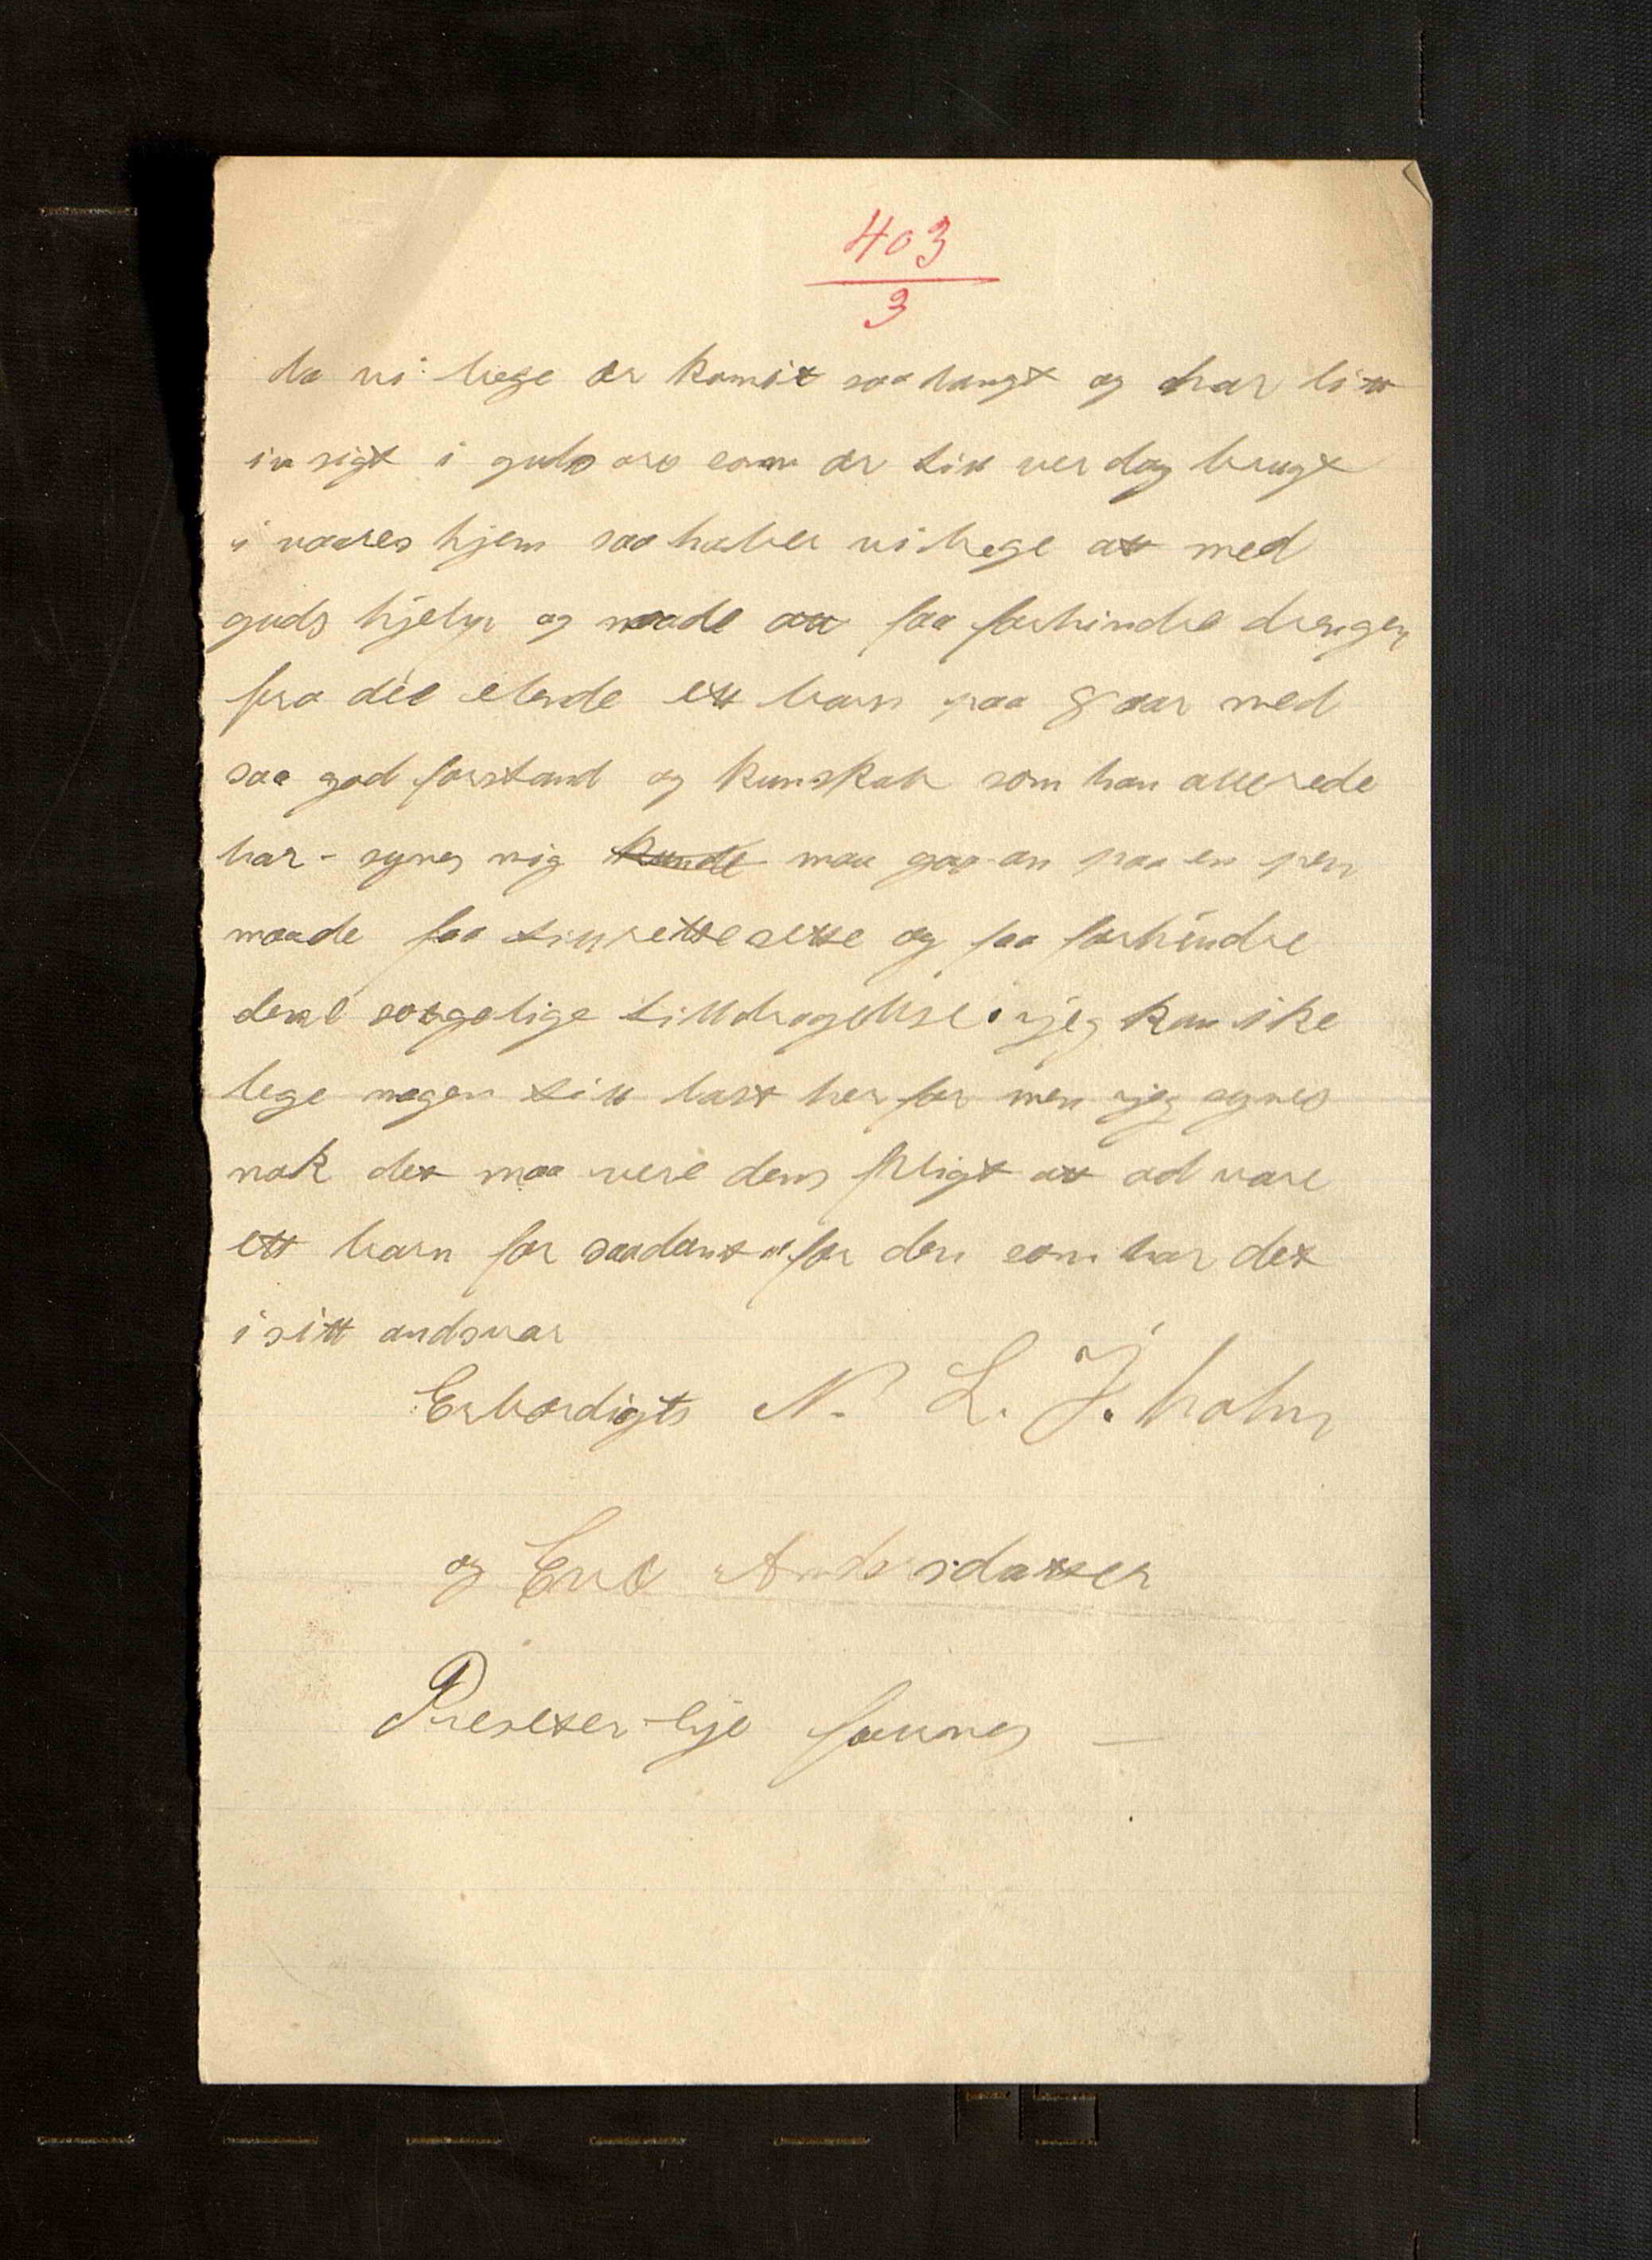 403
3
da vi bege er komit saa langt og har litt
insigt i guds ord som er till ver dag brugt
i vaares hjem saa haber vi bege att med
guds hjelp og naade att faa forhindre drengen
fra det elende ett barn paa 8 aar med
saa god forstand og kunskab som han allerede
har - synes mig kunde maa gaa an paa en pen
maade faa till rette sette og faa forhindre
dene sorgelige tilldragelse. jeg kan ike
lege nogen till last her for men jeg synes
nok det maa vere dens pligt att ad vare
ett barn for saadant for den som har det
i sitt andsvar
Erbordigts N. L. J. holm
og Eva Andersdatter
Prestter-lje founes –